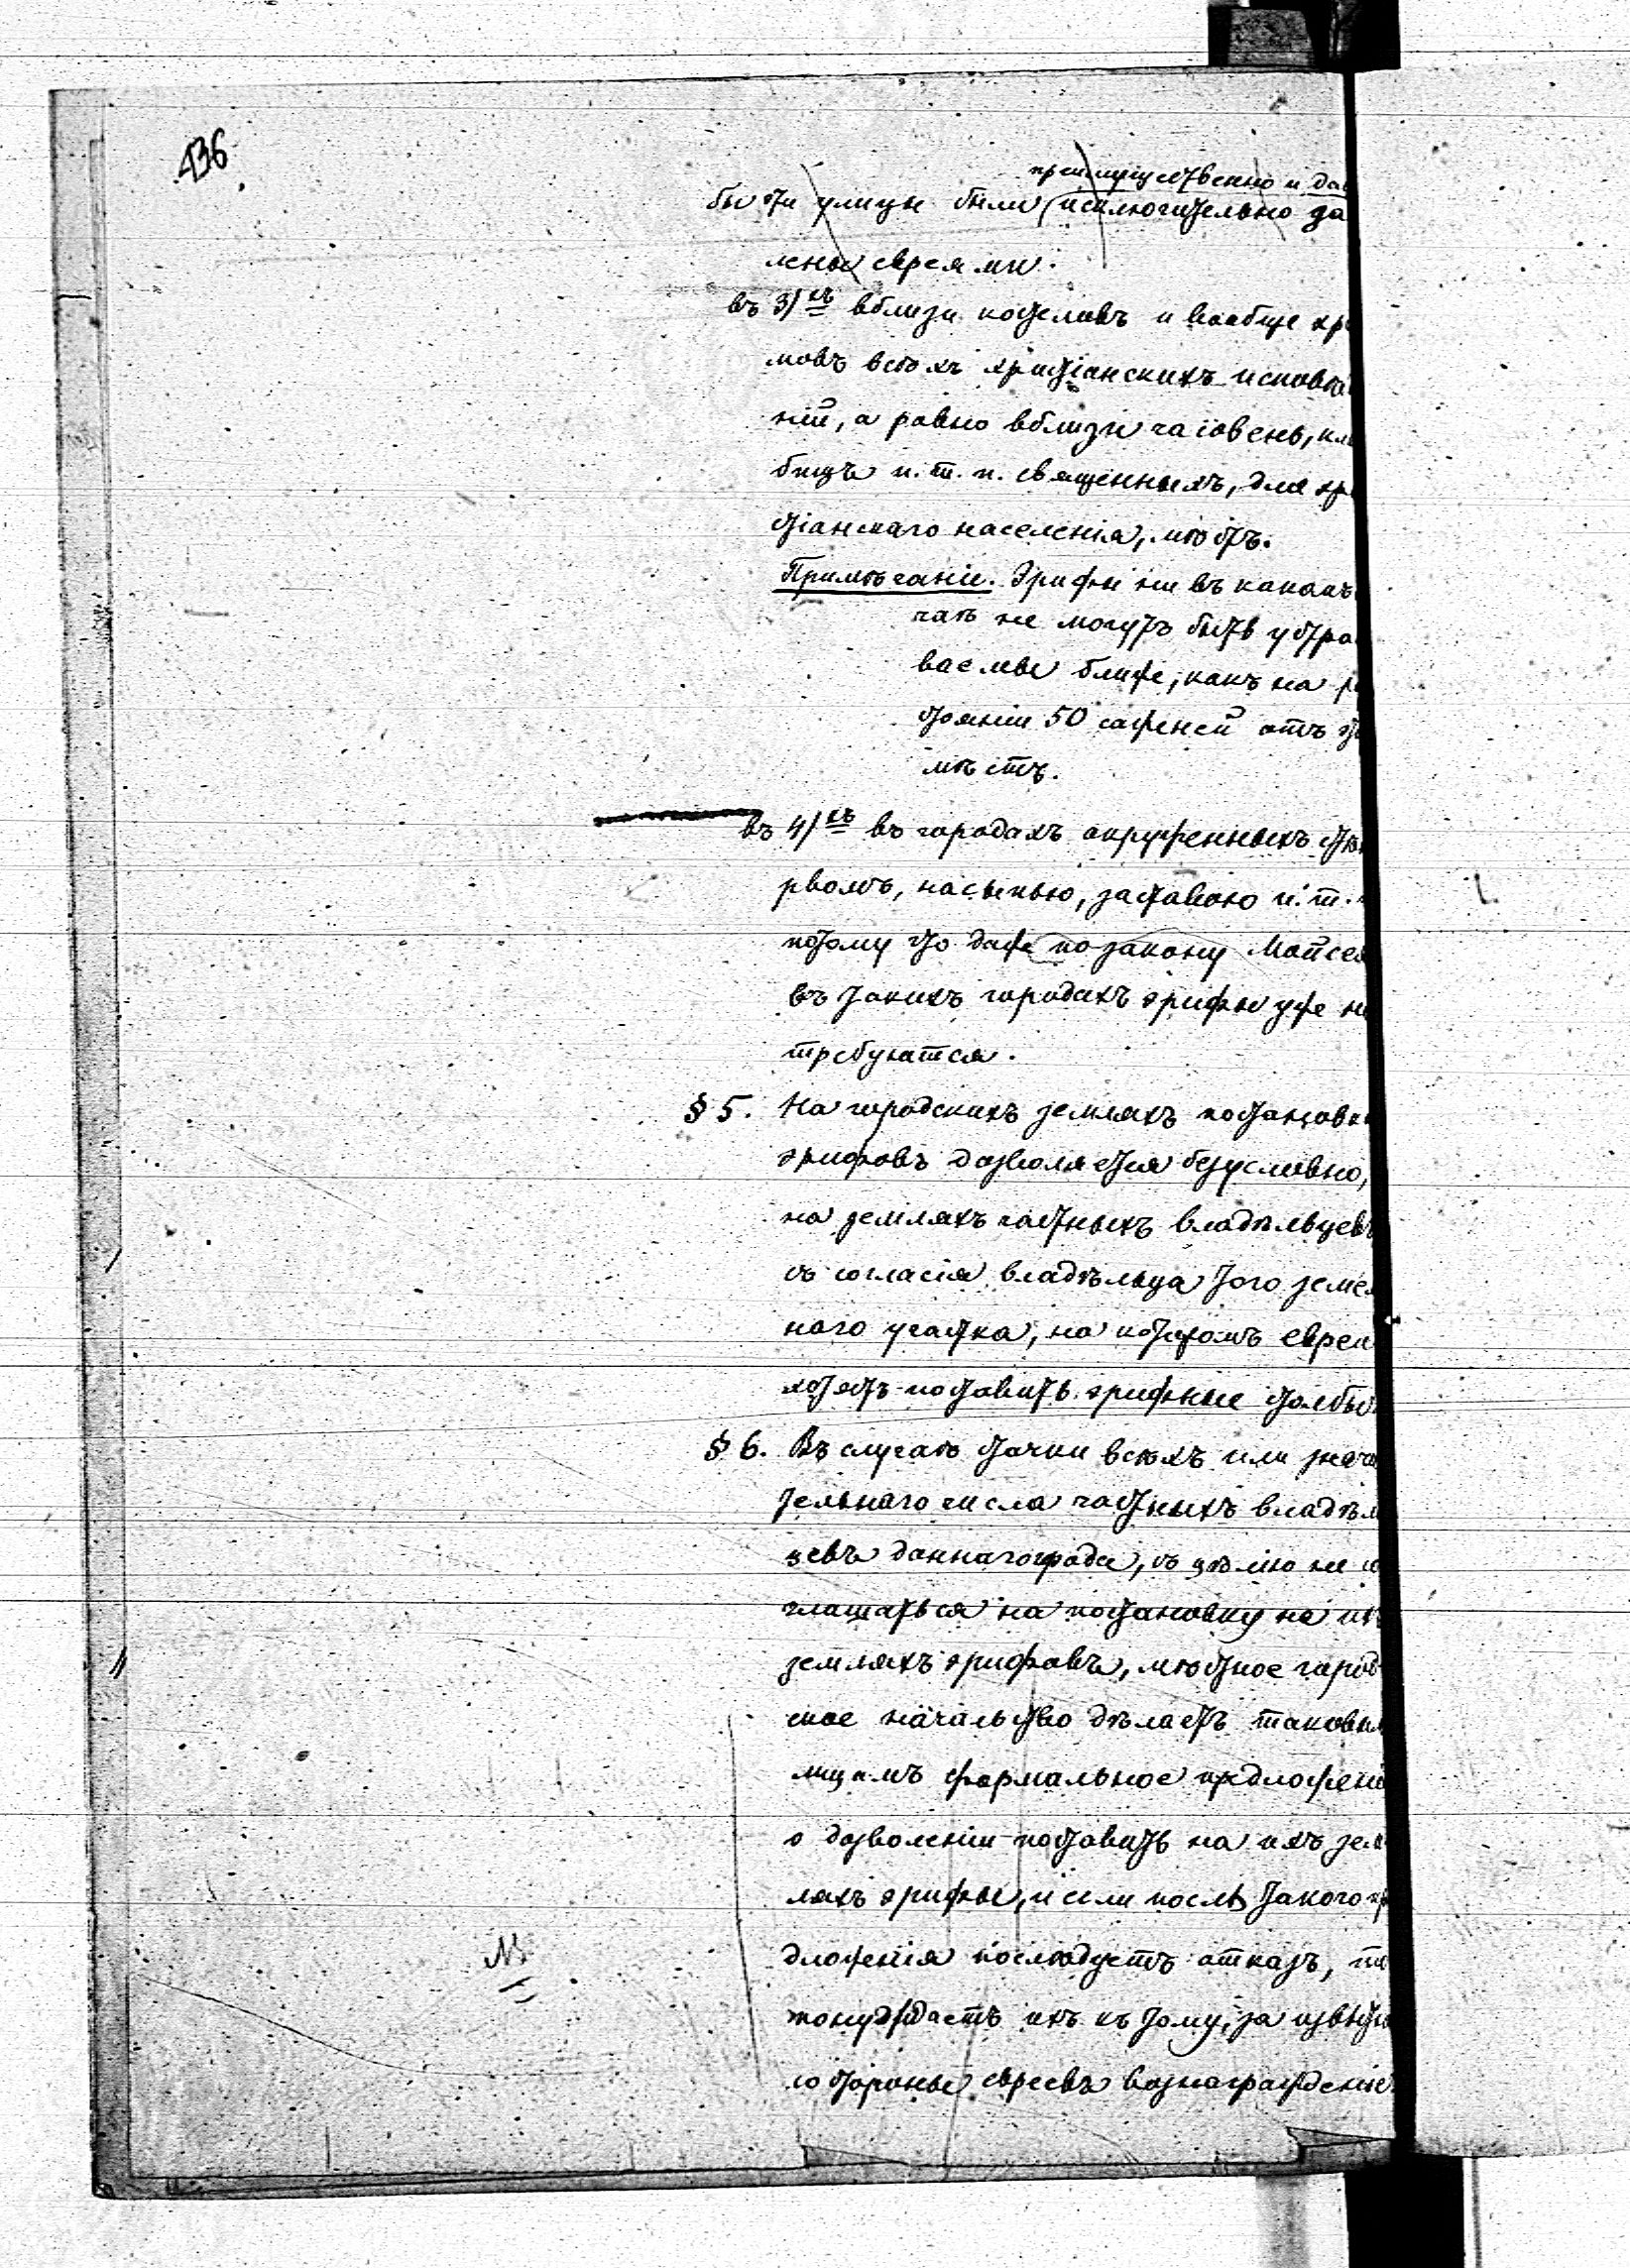 436
преимущественно и да
бы эти улицы были исключительно за
лены евреями.
въ 3/хъ вблизи костеловъ и вообще хра
мовъ всѣхъ христіанскихъ исповѣда
ній, а равно вблизи часовень, кла
бищъ и. т. п. священныхъ, для хри
стіанскаго населенія, мѣстъ.
Примѣчаніе. Эрифы ни въ какомъ
чаѣ не могутъ быть устраи
ваемы ближе, какъ на ра
стояніи 50 саженей отъ
мѣстъ.
въ 4/хъ въ городахъ окруженныхъ
рвомъ, насыпью, заставою и. т. п
потому что даже по закону Мойсея
въ такихъ городахъ эрифы уже не
требуются.
§ 5. На городскихъ земляхъ постановка
эрифовъ дозволяется безусловно,
на земляхъ частныхъ владѣльцевъ
съ согласія владѣльца того земел
наго участка, на которомъ евреи
хотятъ поставить эрифные столбы.
§ 6. Въ случаѣ стачки всѣхъ или значи
тельнаго числа частныхъ владѣль
цевъ даннаго города, съ цѣлію не со
глашаться на постановку на ихъ
земляхъ эрифовъ, мѣстное город
ское начальство дѣлаетъ таковымъ
лицамъ формальное предложеніе
о дозволеніи поставить на ихъ зем
ляхъ эрифы, и если послѣ такого пр
дложенія послѣдуетъ отказъ, то
понуждаетъ ихъ къ тому, за извѣстно
со стороны евреевъ вознагражденіе